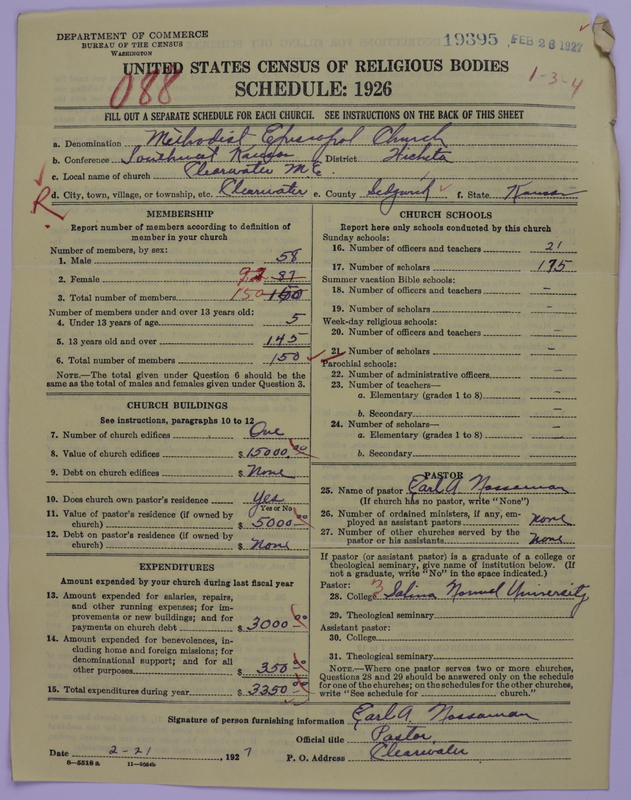 DEPARTMENT OF COMMERCE
BUREAU OF THE CENSUS
WASHINGTON
19395 FEB 26 1927
UNITED STATES CENSUS OF RELIGIOUS BODIES
1-3-4
088
SCHEDULE: 1926
FILL OUT A SEPARATE SCHEDULE FOR EACH CHURCH. SEE INSTRUCTIONS ON THE BACK OF THIS SHEET
a. Denomination Methodist Episcopal Church
b. Conference Southwest Kansas District Wichita
c. Local name of church Clearwater M.E.
R
d. City, town, village, or township, etc. Clearwater e. County Sedgwick f. State Kansas
MEMBERSHIP
Report number of members according to definition of
member in your church
Number of members, by sex:
1. Male 58
2. Female 92 87
3. Total number of members 150 150
Number of members under and over 13 years old:
4. Under 13 years of age 5
5. 13 years old and over 145
6. Total number of members 150
NOTE.—The total given under Question 6 should be
same as the total of males and females given under Question 3.
CHURCH BUILDINGS
See instructions, paragraphs 10 to 12
7. Number of church edifices One
8. Value of church edifices $ 15000.00
9. Debt on church edifices $ None
10. Does church own pastor's residence Yes
Yes or No
11. Value of pastor's residence (if owned by
church) $ 5000.00
12. Debt on pastor's residence (if owned by
church) $ None
EXPENDITURES
Amount expended by your church during last fiscal year
13. Amount expended for salaries, repairs,
and other running expenses; for im-
provements or new buildings; and for
payments on church debt $ 3000.00
14. Amount expended for benevolences, in-
cluding home and foreign missions; for
denominational support; and for all
other purposes $ 350.00
15. Total expenditures during year $ 3350.00
CHURCH SCHOOLS
Report here only schools conducted by this church
Sunday schools:
16. Number of officers and teachers 21
17. Number of scholars 175
Summer vacation Bible schools:
18. Number of officers and teachers –
19. Number of scholars –
Week-day religious schools:
20. Number of officers and teachers –
21. Number of scholars –
Parochial schools:
22. Number of administrative officers –
23. Number of teachers—
a. Elementary (grades 1 to 8) –
b. Secondary –
24. Number of scholars—
a. Elementary (grades 1 to 8) –
b. Secondary –
PASTOR
25. Name of pastor Earl A Nossaman
(If church has no pastor, write "None")
26. Number of ordained ministers, if any, em-
ployed as assistant pastors none
27. Number of other churches served by the
pastor or his assistants none
If pastor (or assistant pastor) is a graduate of a college or
theological seminary, give name of institution below. (If
not a graduate, write "No" in the space indicated.)
Pastor:
28. College 3 Salina Normal University
29. Theological seminary
Assistant pastor:
30. College
31. Theological seminary
NOTE.—Where one pastor serves two or more churches,
Questions 28 and 29 should be answered only on the schedule
for one of the churches; on the schedules for the other churches,
write "See schedule for church."
Signature of person furnishing information Earl A. Nossaman
Official title Pastor
Date 2-21 1927 P. O. Address Clearwater
8—5518 a